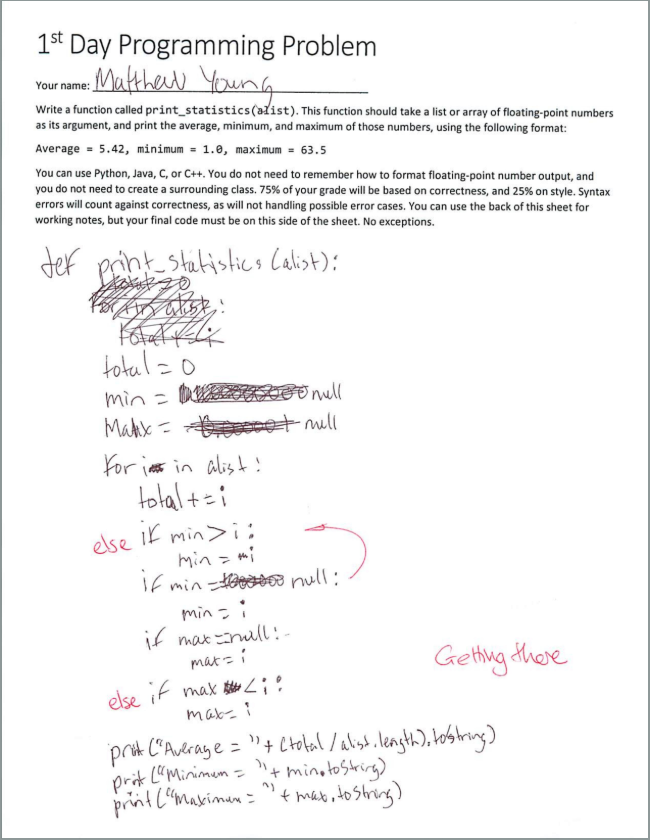 1st Day Programming Problem
Your name: Matthew Young
Write a function called print_statistics(alist). This function should take a list or array of floating-point numbers
as its argument, and print the average, minimum, and maximum of those numbers, using the following format:
Average = 5.42, minimum = 1.0, maximum = 63.5
You can use Python, Java, C, or C++. You do not need to remember how to format floating-point number output, and
you do not need to create a surrounding class. 75% of your grade will be based on correctness, and 25% on style. Syntax
errors will count against correctness, as will not handling possible error cases. You can use the back of this sheet for
working notes, but your final code must be on this side of the sheet. No exceptions.
def print_statistics (alist):
total = 0
for i in alist:
total += i
total = 0
min = null
Max = null
for i in alist:
total += i
else if min > i:
min = i
if min = null:
min = i
if max = null:
max = i
Getting there
else if max < i:
max = i
print ("Average = " + (total / alist.length).toString)
print ("Minimum = " + min.toString)
print ("Maximum = " + max.toString)